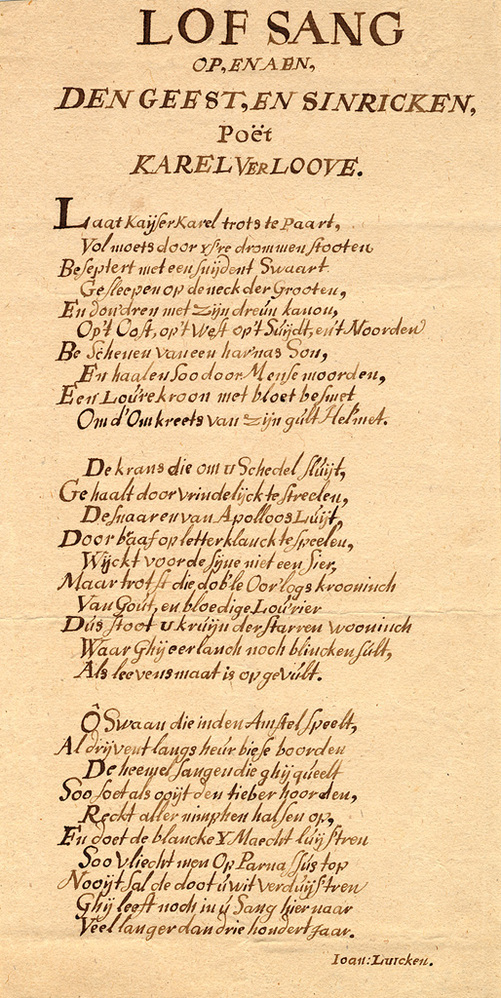 LOF SANG
OP, EN AEN,
DEN GEEST, EN SINRICKEN,
Poët
KAREL VERLOOVE.
Laat Kaijser Karel trots te Paart,
Vol moets door ysre drommen stooten
Beseptert met een snijdent Swaart
Gesleepen op de neck der Grooten,
En dond'ren met zijn dreún kanon,
Op't Oost, op't West op't Súijdt, en't Noorden
Be Schenen van een harnas Son,
En haalen Soo door Mense moorden,
Een Loúre kroon met bloet besmet
Om d'Omkreets van zijn gúlt Helmet.
De krans die om u Schedel slúijt,
Gehaalt door vrindelijck te streelen,
De snaaren van Apolloos Lúijt,
Door b'aaf op letterklanck te speelen,
Wijckt voor de sijne niet een sier,
Maar trotst die dob'le Oor'logs krooninch
Van Goút, en bloedige Loúrier
Dús stoot u krúijn der starren wooninch
Waar Ghij eer lanch noch blincken súlt,
Als leevens maat is opgevúlt.
Ô Swaan die in den Amstel speelt,
Al drijvent langs heúr biese boorden
De heemel sangen die ghij qúeelt
Soo soet als ooijt den tieber hoorden,
Reckt aller nimphen halsen op,
En doet de blancke Y Maecht lúijstren
Soo Vliecht men Op Parnassús top
Nooijt Sal de doot ú wit verdúijstren
Ghij leeft noch in ú Sang hier naar
Veel langer dan drie hondert Jaar.
Ioan: Luicken.